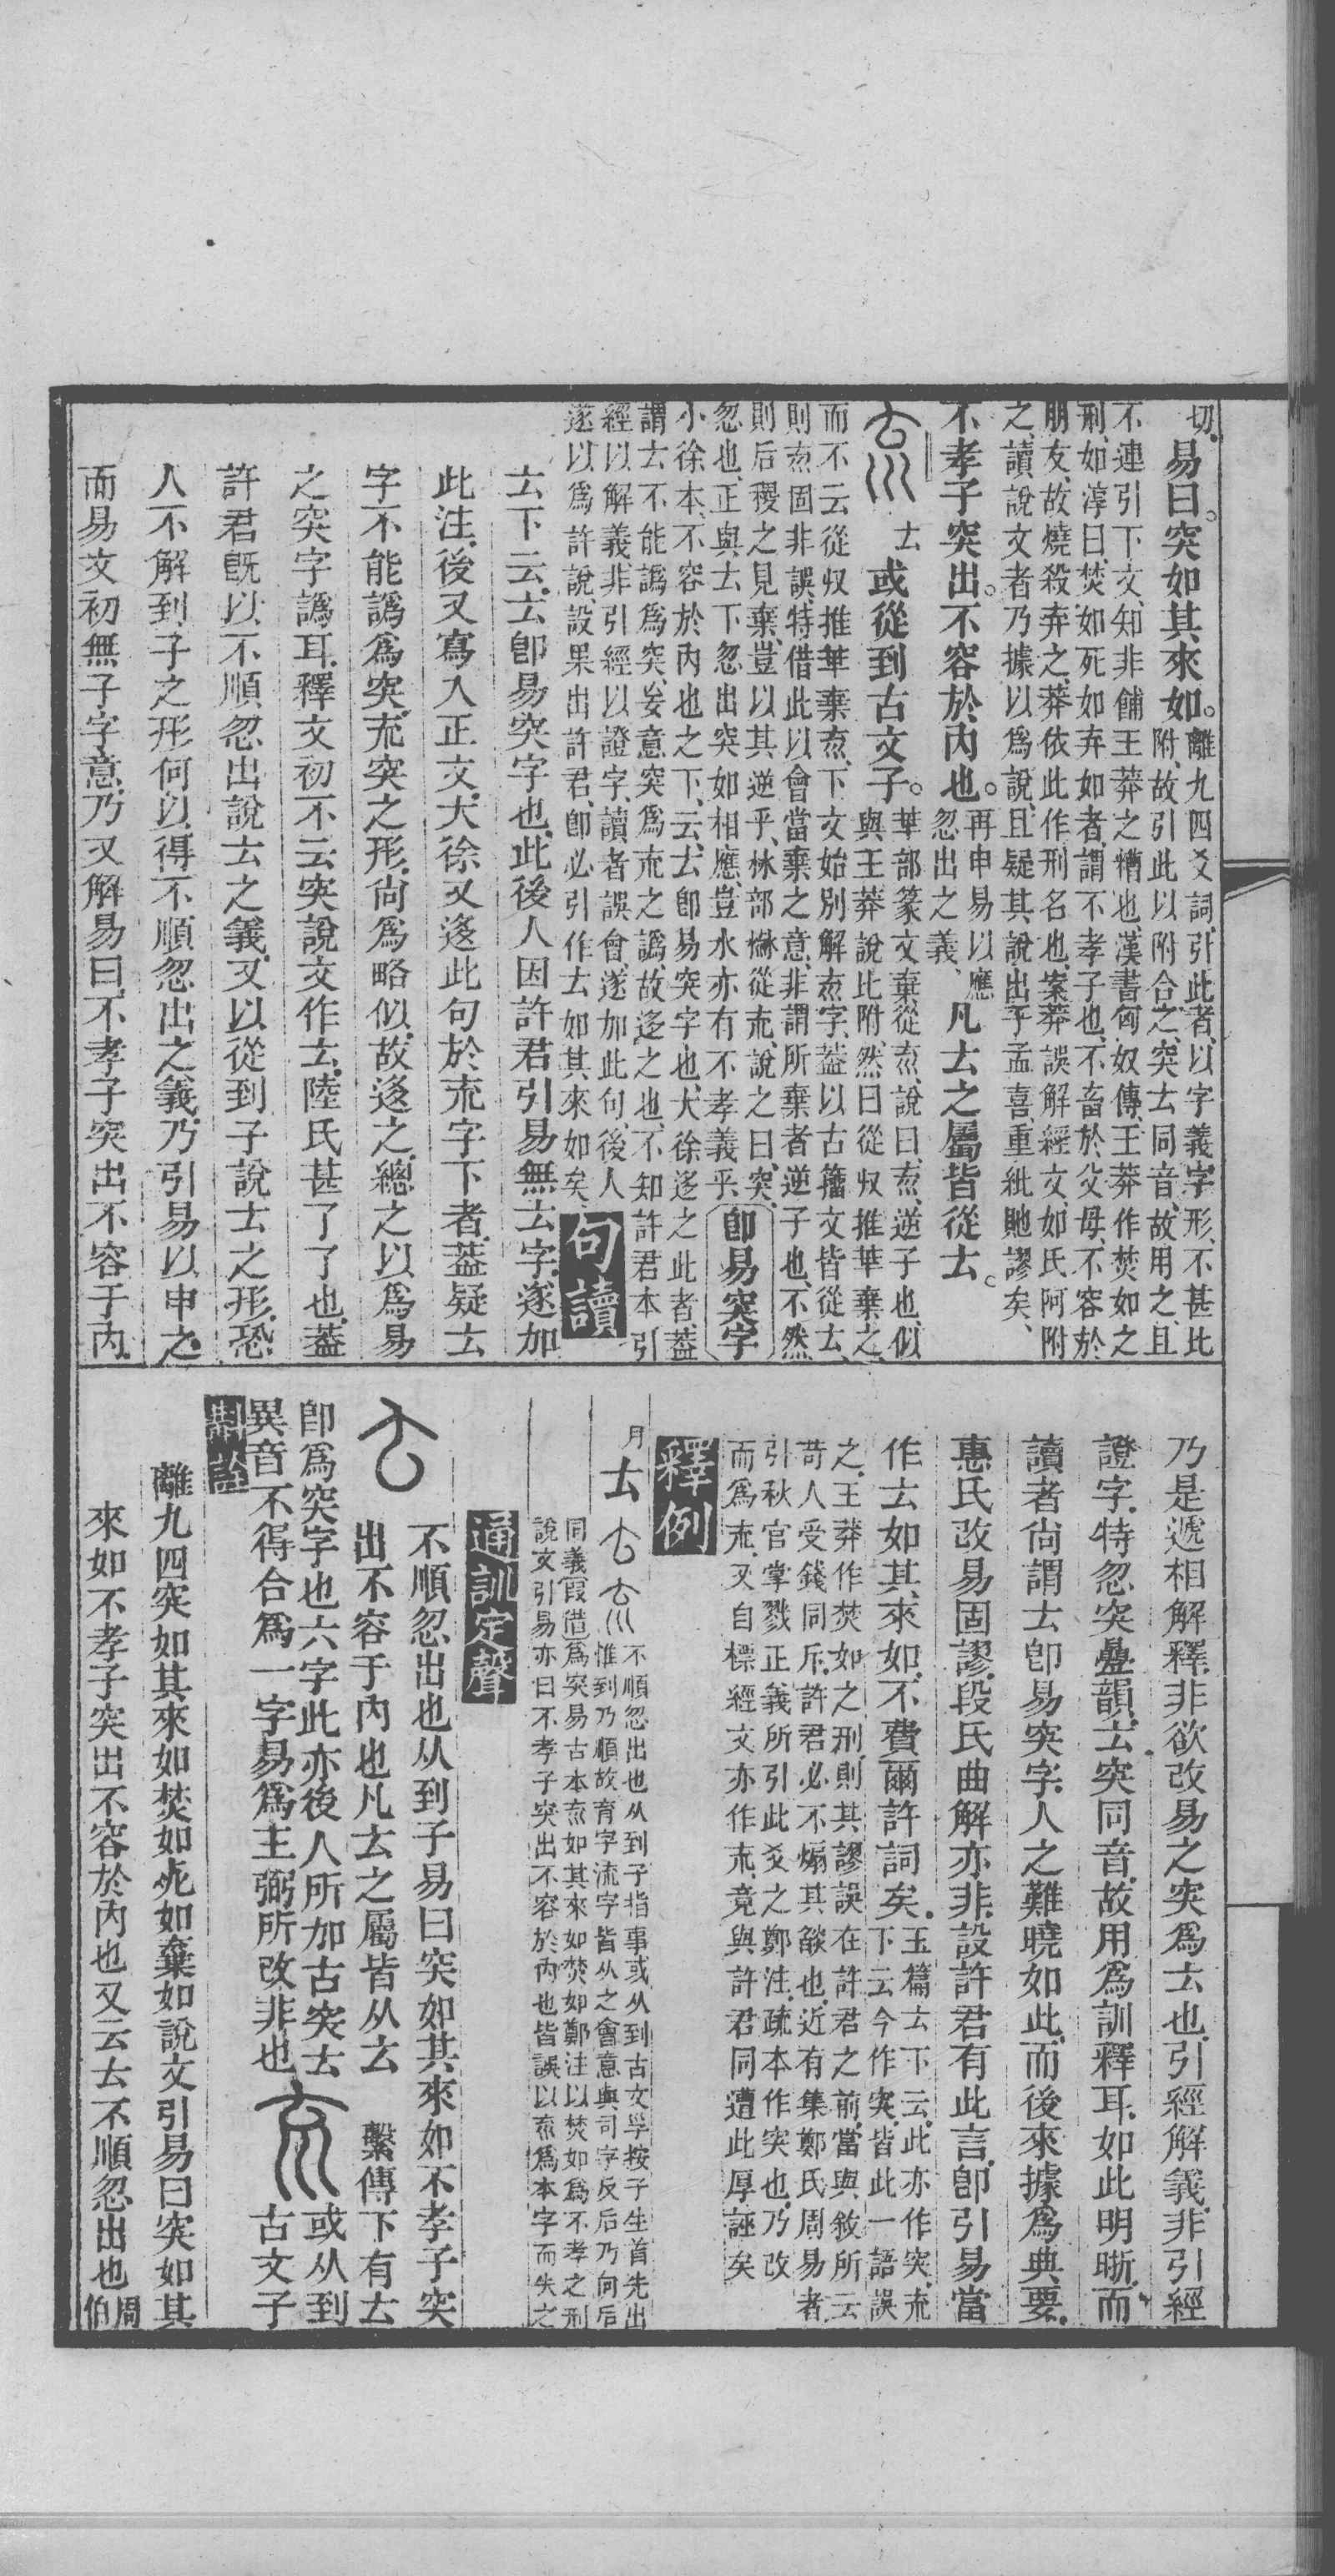 切。易曰。突如其來如。離九四爻詞、引此者、以字義字形、不甚比
附、故引此以附合之、突𠫓同音、故用之、且
不連引下文、知非餔王莽之糟也、漢書匈奴傳、王莽作焚如之
刑、如淳曰、焚如死如弃如者、謂不孝子也、不畜於父母、不容於
朋友、故燒殺弃之、莽依此作刑名也、案莽誤解經文、如氏阿附
之、讀說文者乃據以爲說、且疑其說出乎孟喜、重紕貤謬矣、
不孝子突出。不容於內也。再申易以應
忽出之義、凡𠫓之屬皆從𠫓。
𠫓或從到古文子。𠦒部篆文棄從㐬、說曰、㐬、逆子也、似
與王莽說比附、然曰從収推華棄之
而不云從収推華棄㐬、下文始別解㐬字、葢以古籒文皆從𠫓、
則㐬固非誤、特借此以會當棄之意、非謂所棄者逆子也、不然
則后稷之見棄、豈以其逆乎、𣏟部㯲從㐬、說之曰、突、
忽也、正與𠫓下忽出突如相應、豈水亦有不孝義乎、即易突字
小徐本、不容於內也之下、云、𠫓卽易突字也、大徐迻之此者、葢
謂𠫓不能譌爲突、妄意突爲㐬之譌、故迻之也、不知許君本引
經以解義、非引經以證字、讀者誤會、遂加此句、後人
遂以爲許說、設果出許君、卽必引作𠫓如其來如矣、
句讀
𠫓下云、𠫓卽易突字也、此後人因許君引易無𠫓字、遂加
此注、後又寫入正文、大徐又迻此句於㐬字下者、葢疑𠫓
字不能譌爲突、㐬突之形、尙爲略似、故迻之、總之以爲易
之突字譌耳、釋文初不云突說文作𠫓、陸氏甚了了也、葢
許君旣以不順忽出說𠫓之義、又以從到子說𠫓之形、恐
人不解到子之形何以得不順忽出之義、乃引易以申之、
而易文初無子字意、乃又解易曰、不孝子突出不容于內、
乃是遞相解釋、非欲改易之突爲𠫓也、引經解義、非引經
證字、特忽突疊韻、𠫓突同音、故用爲訓釋耳、如此明晰、而
讀者尙謂𠫓卽易突字、人之難曉如此、而後來據爲典要、
惠氏改易固謬、段氏曲解亦非、設許君有此言、卽引易當
作𠫓如其來如、不費爾許詞矣、玉篇𠫓下云、此亦作突、㐬
下云今作突、皆此一語誤
之、王莽作焚如之刑、則其謬誤在許君之前、當與敘所云
苛人受錢同斥、許君必不煽其燄也、近有集鄭氏周易者
引秋官掌戮正義所引此爻之鄭注、疏本作突也、乃改
而爲㐬、又自標經文亦作㐬、竟與許君同遭此厚誣矣
釋例
月
𠫓 不順忽出也从到子指事或从到古文㜽按子生首先出
惟到乃順故育字流字皆从之會意與司字反后乃向后
同義叚借爲突易古本㐬如其來如焚如鄭注以焚如爲不孝之刑
說文引易亦曰不孝子突出不容於內也皆誤以㐬爲本字而失之
通訓定聲
不順忽出也从到子易曰突如其來如不孝子突
出不容于內也凡𠫓之屬皆从𠫓 繫傳下有𠫓
卽爲突字也六字此亦後人所加古突𠫓
異音不得合爲一字易爲王弼所改非也 或从到
古文子
斠詮
離九四突如其來如焚如死如棄如說文引易曰突如其
來如不孝子突出不容於內也又云𠫓不順忽出也周
伯